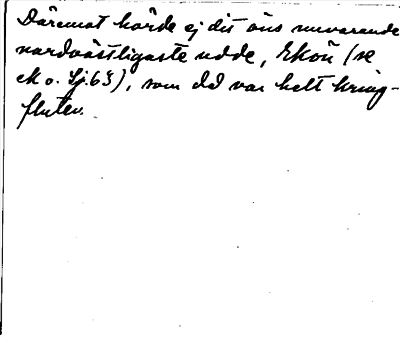 Däremot hörde ej dit öns nuvarande
nordvästligaste udde, Ekön (se
ek o. Lj. 63), som då var helt kring-
fluten.